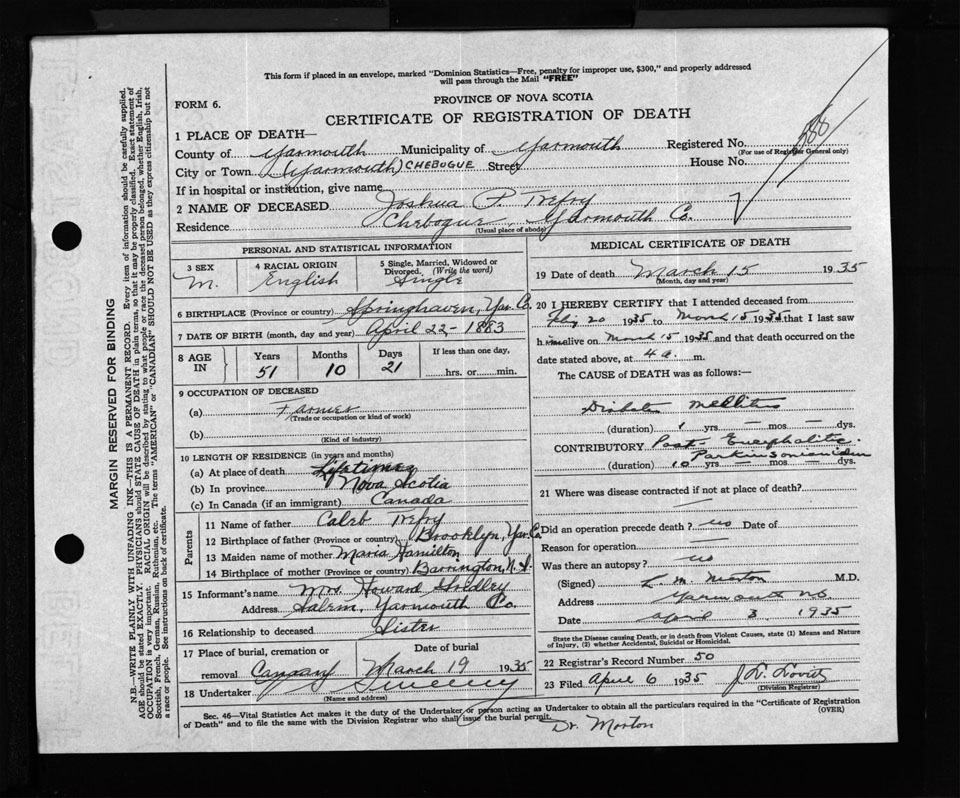 This form if placed in an envelope, marked "Dominion Statistics—Free, penalty for improper use, $300," and properly addressed
will pass through the Mail "FREE"
FORM 6.
PROVINCE OF NOVA SCOTIA
CERTIFICATE OF REGISTRATION OF DEATH
1 PLACE OF DEATH—
County of Yarmouth Municipality of Yarmouth Registered No.
(For use of Registrar General only)
City or Town (Yarmouth) CHEBOGUE Street House No.
If in hospital or institution, give name
2 NAME OF DECEASED Joshua P. Trefry
Residence Chebogue Yarmouth Co.
(Usual place of abode)
PERSONAL AND STATISTICAL INFORMATION
3 SEX M. 4 RACIAL ORIGIN English 5 Single, Married, Widowed or Divorced. (Write the word) Single
6 BIRTHPLACE (Province or country) Springhaven, Yar. Co.
7 DATE OF BIRTH (month, day and year) April 22 - 1883
8 AGE IN Years 51 Months 10 Days 21 If less than one day, hrs. or min.
9 OCCUPATION OF DECEASED
(a) Farmer
(Trade or occupation or kind of work)
(b)
(Kind of industry)
10 LENGTH OF RESIDENCE (in years and months)
(a) At place of death Lifetime
(b) In province Nova Scotia
(c) In Canada (if an immigrant) Canada
Parents
11 Name of father Caleb Trefry
12 Birthplace of father (Province or country) Brooklyn, Yar. Co.
13 Maiden name of mother Maria Hamilton
14 Birthplace of mother (Province or country) Barrington, N.S.
15 Informant's name Mrs. Howard
Address Salem, Yarmouth Co.
16 Relationship to deceased Sister
17 Place of burial, cremation or removal Date of burial March 19 1935
18 Undertaker Sweeny
(Name and address)
MEDICAL CERTIFICATE OF DEATH
19 Date of death March 15 1935
(Month, day and year)
20 I HEREBY CERTIFY that I attended deceased from
20 1935 to March 15 1935 that I last saw
h im alive on March 15 1935 and that death occurred on the
date stated above, at 4 a. m.
The CAUSE of DEATH was as follows:—
Diabetes Mellitus
(duration) 1 yrs — mos — dys.
CONTRIBUTORY Post-Encephalitic
Parkinsonianism
(duration) 10 yrs — mos — dys.
21 Where was disease contracted if not at place of death?
Did an operation precede death? no Date of
Reason for operation —
Was there an autopsy? no
(Signed) L. M. Morton M.D.
Address Yarmouth NS
Date April 3 1935
State the Disease causing Death, or in death from Violent Causes, state (1) Means and Nature
of Injury, (2) whether Accidental, Suicidal or Homicidal.
22 Registrar's Record Number 50
23 Filed April 6 1935
(Division Registrar)
Sec. 46—Vital Statistics Act makes it the duty of the Undertaker or person acting as Undertaker to obtain all the particulars required in the "Certificate of Registration
of Death" and to file the same with the Division Registrar who shall issue the burial permit. (OVER)
Dr. Morton
MARGIN RESERVED FOR BINDING
N.B.—WRITE PLAINLY WITH UNFADING INK—THIS IS A PERMANENT RECORD. Every item of information should be carefully supplied.
AGE should be stated EXACTLY. PHYSICIANS should STATE CAUSE OF DEATH in plain terms, so that it may be properly classified. Exact statement of
OCCUPATION is very important. RACIAL ORIGIN will be described by stating to what people or race the deceased person belonged, whether English, Irish,
Scottish, French, German, Russian, Ruthenian, etc. The terms "AMERICAN" or "CANADIAN" SHOULD NOT BE USED as they express citizenship but not
a race or people. See instructions on back of certificate.